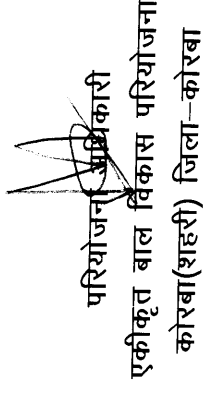 परियोजना अधिकारी
एकीकृत बाल विकास परियोजना
कोरबा(शहरी) जिला–कोरबा